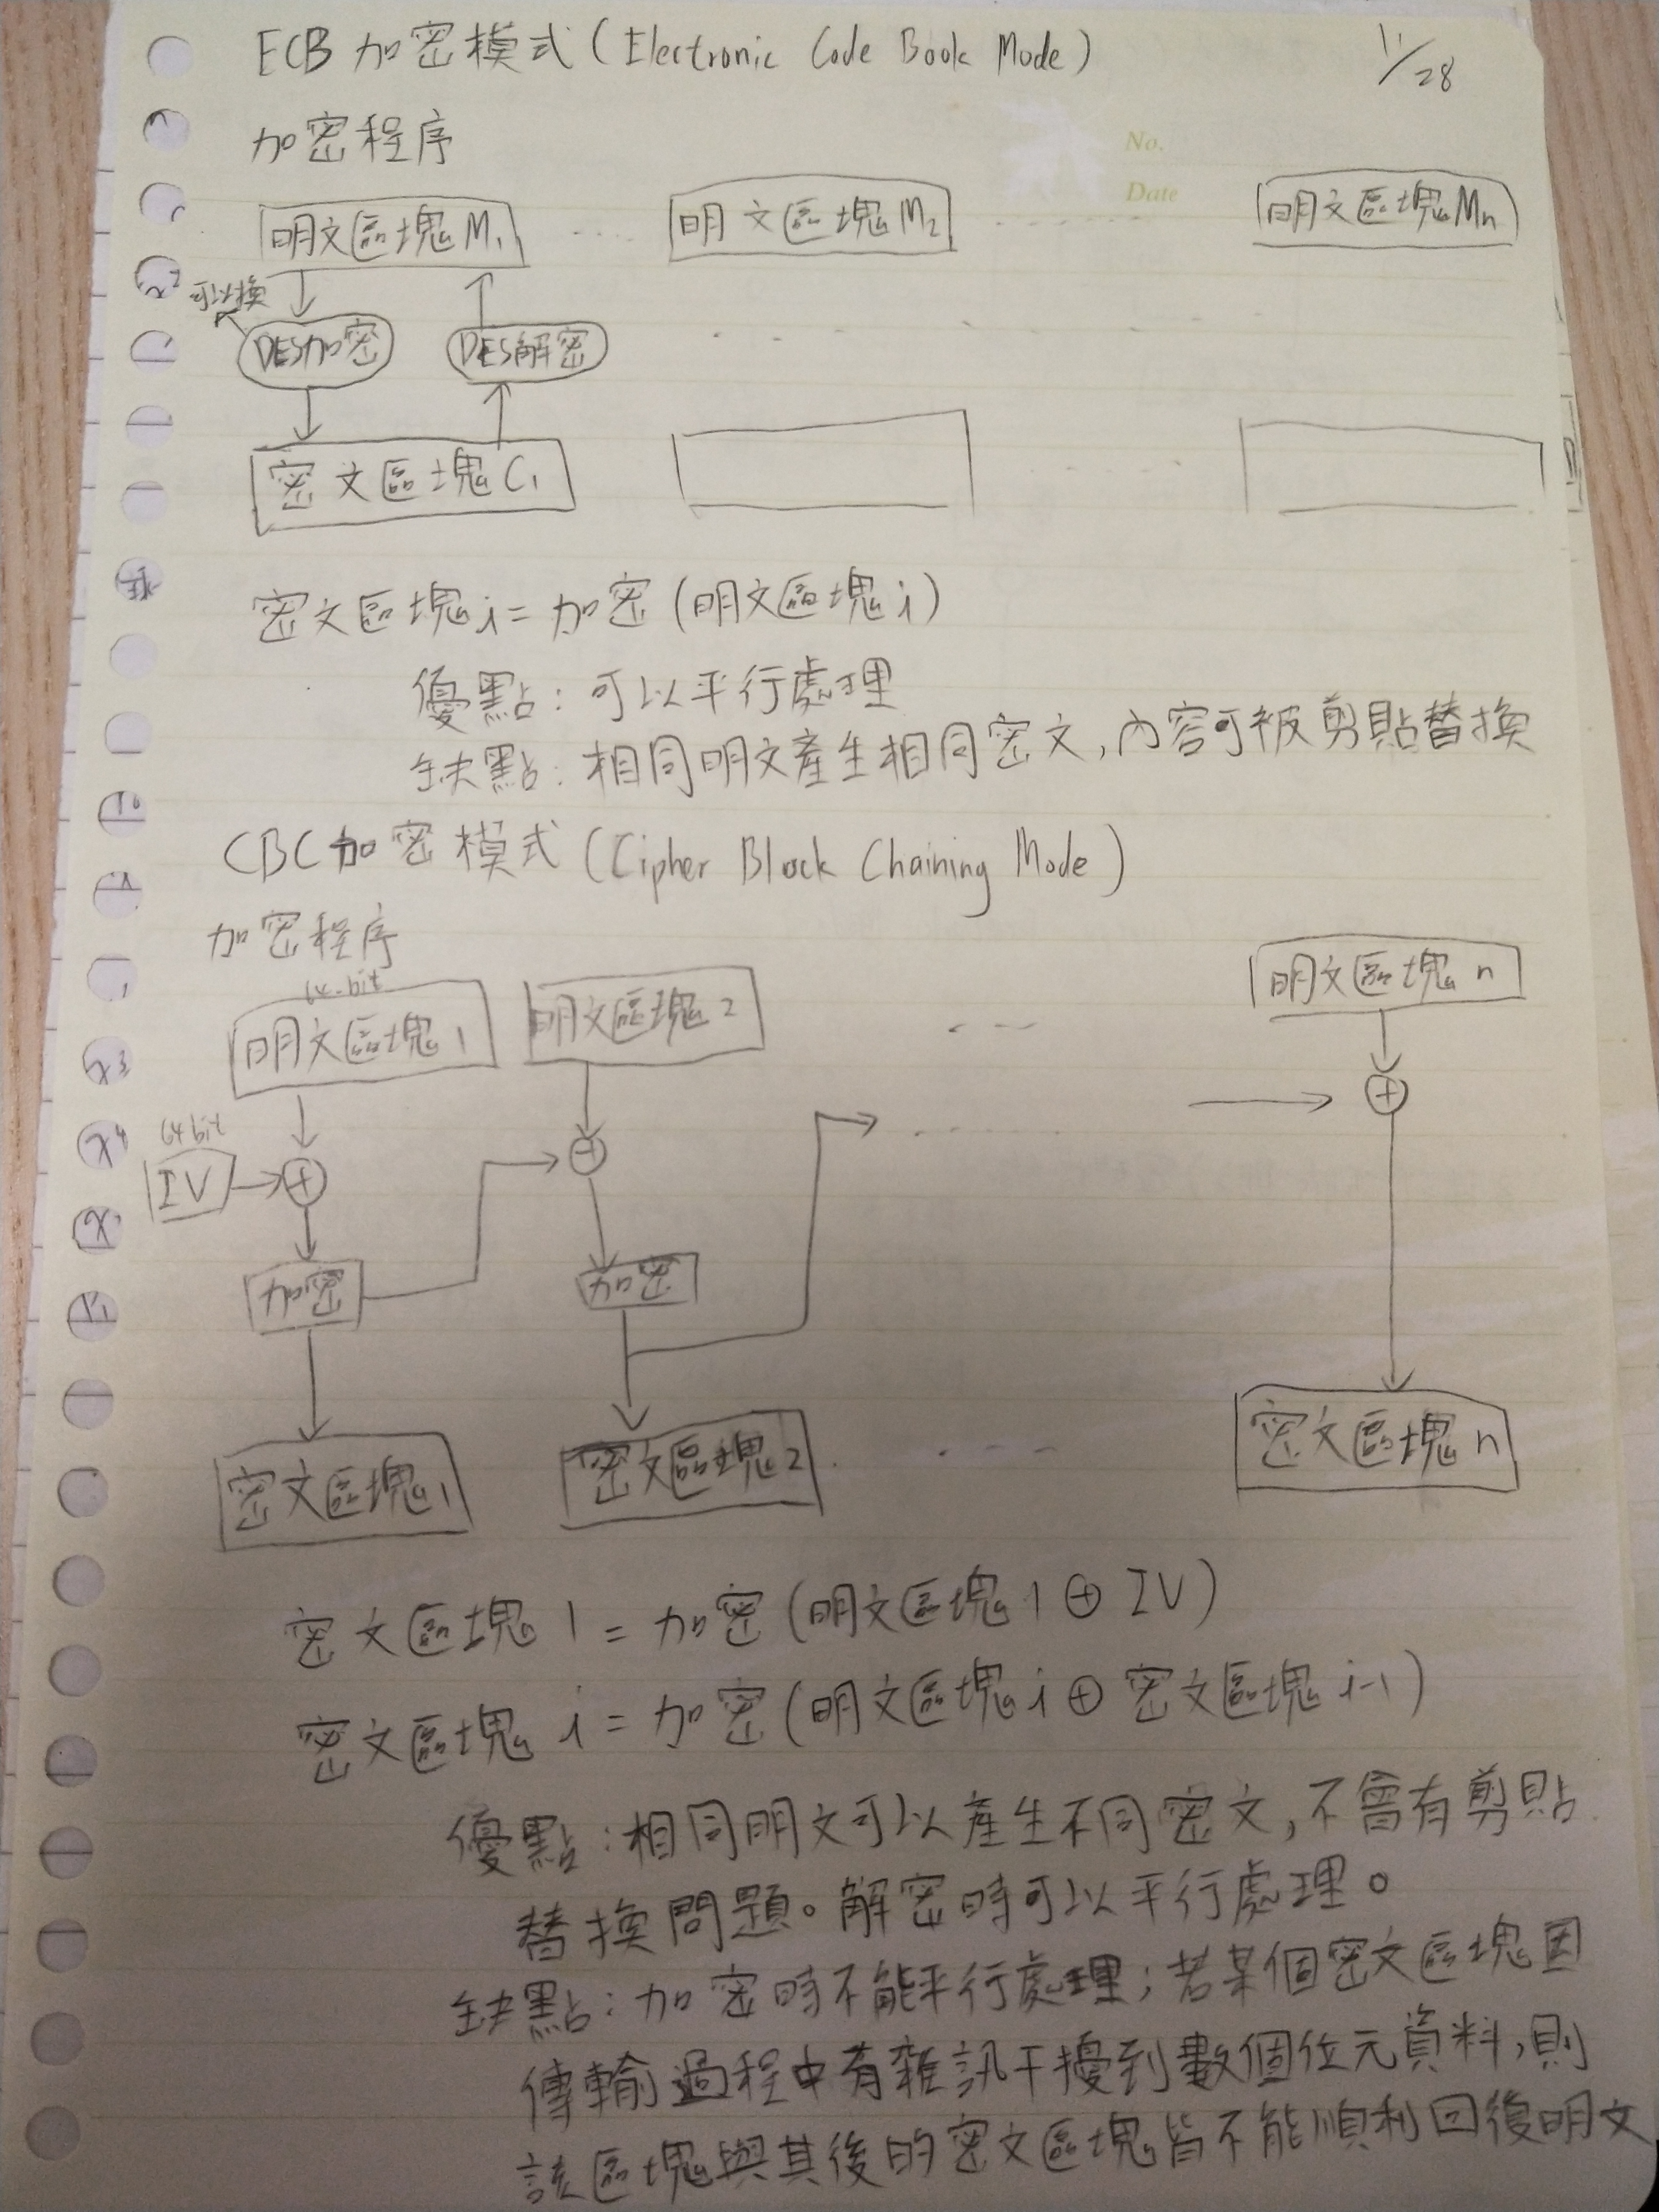 ECB 加密模式 (Electronic Code Book Mode) 11/28
加密程序
No.
Date
明文區塊M1 ---- 明文區塊M2 ------ 明文區塊Mn
可以換
DES加密 DES解密
密文區塊C1
密文區塊i = 加密 (明文區塊i)
優點: 可以平行處理
缺點: 相同明文產生相同密文, 內容可被剪貼替換
CBC加密模式 (Cipher Block Chaining Mode)
加密程序
64-bit
明文區塊1 明文區塊2 --- 明文區塊n
64bit
IV → ⊕ ⊕ → ⊕
加密 加密
密文區塊1 密文區塊2 ---- 密文區塊n
密文區塊1 = 加密 (明文區塊1 ⊕ IV)
密文區塊i = 加密 (明文區塊i ⊕ 密文區塊i-1)
優點: 相同明文可以產生不同密文, 不會有剪貼
替換問題。解密時可以平行處理。
缺點: 加密時不能平行處理; 若某個密文區塊因
傳輸過程中有雜訊干擾到數個位元資料, 則
該區塊與其後的密文區塊皆不能順利回復明文